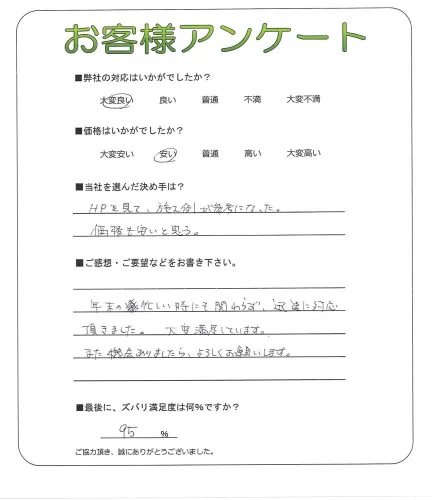 お客様アンケート
■弊社の対応はいかがでしたか？
大変良い 良い 普通 不満 大変不満
■価格はいかがでしたか？
大変安い 安い 普通 高い 大変高い
■当社を選んだ決め手は？
HPを見て、施工例が参考になった。
価格も安いと思う。
■ご感想・ご要望などをお書き下さい。
年末の忙しい時にも関わらず、迅速に対応
頂きました。 大変満足しています。
また機会ありましたら、よろしくお願いします。
■最後に、ズバリ満足度は何％ですか？
95 ％
ご協力頂き、誠にありがとうございました。